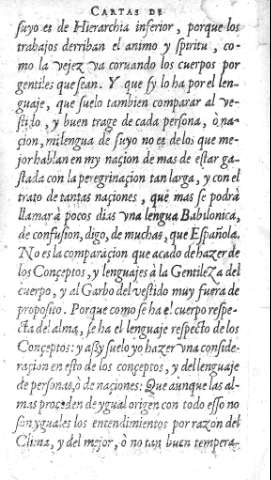 CARTAS DE
suyo es de Hierarchia inferior, porque los
trabajos derriban el animo y spiritu, co-
mo la vejez va coruando los cuerpos por
gentiles que sean. Y que sy lo ha por el len-
guaje, que suelo tambien comparar al ve-
stido, y buen trage de cada persona, ò na-
çion, mi lengua de suyo no es de los que me-
jor hablan en my naçion de mas de estar ga-
stada con la peregrinaçion tan larga, y con el
trato de tantas naçiones, que mas se podrà
llamar à pocos dias vna lengua Babilonica,
de confusion, digo, de muchas, que Española.
No es la comparaçion que acado de hazer de
los Conçeptos, y lenguajes à la GentileZa del
cuerpo, y al Garbo del vestido muy fuera de
proposito. Porque como se ha el cuerpo respe-
cta del alma, se ha el lenguaje respecto de los
Conçeptos: y assy suelo yo hazer vna conside-
raçion en esto de los conçeptos, y del lenguaje
de personas, ò de naçiones: Que aunque las al-
mas proceden de ygual origen con todo esso no
son yguales los entendimientos por razon del
Clima, y del mejor, ò no tan buen tempera-